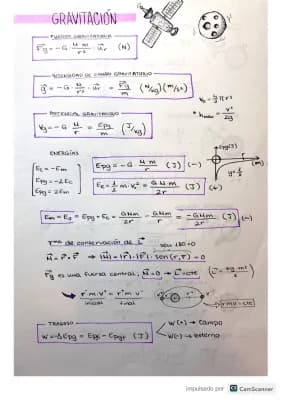 GRAVITACIÓN
FUERZA GRAVITATORIA
F⃗g = -G · M·m/r² · u⃗r (N)
INTENSIDAD DE CAMPO GRAVITATORIO
g⃗ = -G · M/r² · u⃗r = F⃗g/m (N/kg) (m/s²)
POTENCIAL GRAVITATORIO
Vg = -G · M/r = Epg/m (J/kg)
* hmáx = v²/2g
ENERGÍAS
Ec = -Em
Epg = -2Ec
Epg = 2Em
Epg = -G M·m/r (J) (-)
Ec = 1/2 m·v² = G M·m/2r (J) (+)
Epg(J)
r (m)
Em = Ec + Epg = GMm/2r - GMm/r = -GMm/2r (J) (-)
Tma de conservación de L⃗
sen 180=0
M⃗ = r⃗ × F⃗ ⇒ |M⃗| = |r⃗|·|F⃗|·sen(r,F) = 0
F⃗g es una fuerza central; M⃗=0 → L⃗=cte
r·m·v = r·m·v
inicial final
r·m·v = cte
TRABAJO
W = -ΔEpg = Epgi - Epgf (J)
W(+) → Campo
W(-) → externo
impulsado por CS CamScanner